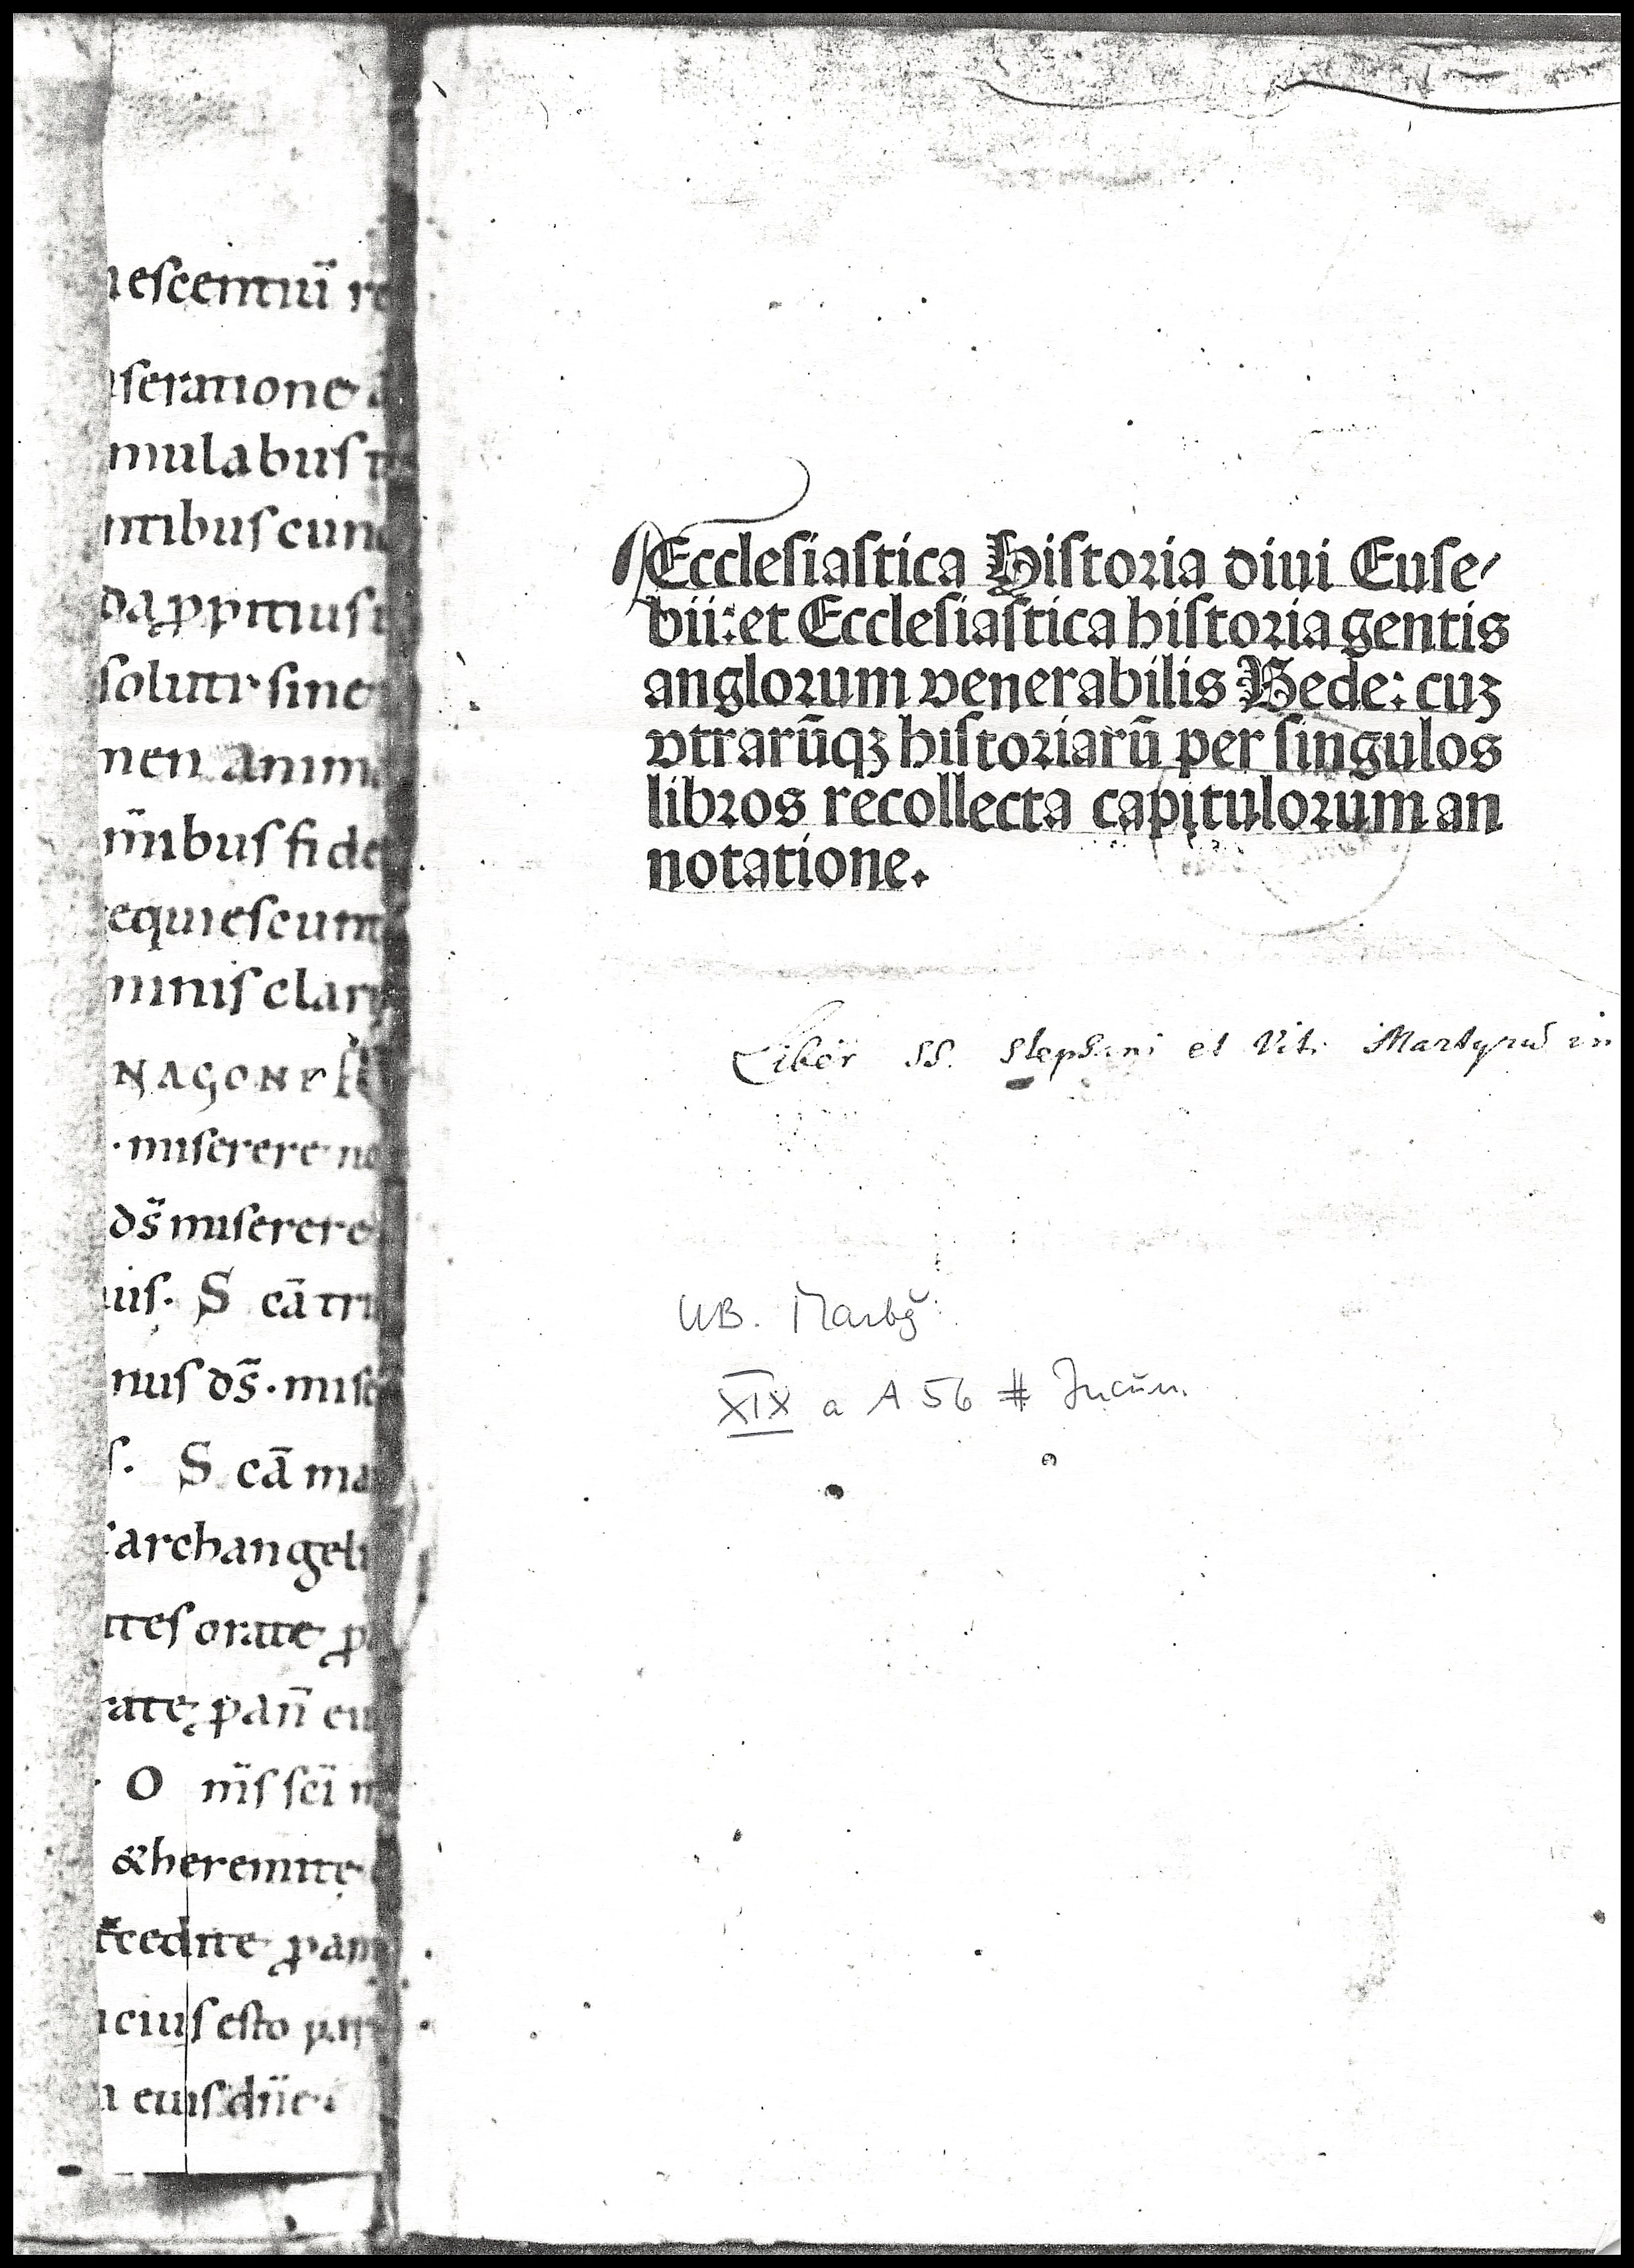 escentiū
seratione
mulabus
ntibus cun
da ꝓpitius
soluti sine
men anima
m̄ibus fide
equiescunt
minis clar
N AGONE
· miserere no
ds̄ miserere
uis. S cā tri
nus ds̄ · mise
s. S cā ma
archangeli
tes orate ꝓ
rate, ꝓ an̄ eu
· O m̄s sc̄i m
& heremite
cedite ꝓ an
cius esto
eius dn̄e·
Ecclesiastica Historia diui Euse⸗
bii: et Ecclesiastica historia gentis
anglorum venerabilis Bede: cuȝ
vtrarūqȝ historiarū per singulos
libros recollecta capitulorum an
notatione.
Liber SS. Stephani et Viti Martyrū in
UB. Marbg
XIX a A 56 # Incun.